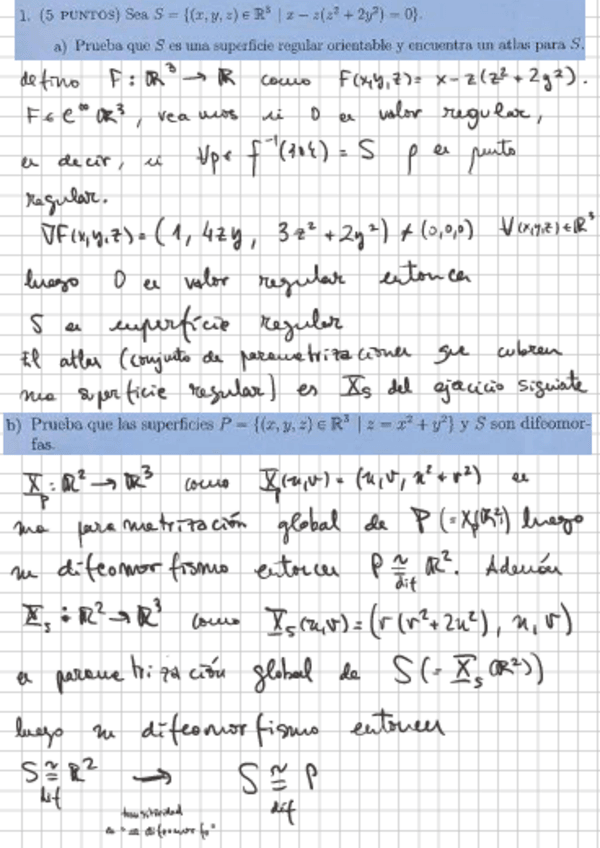 1. (5 PUNTOS) Sea S = {(x, y, z) ∈ ℝ³ | x − z(z² + 2y²) = 0}.
a) Prueba que S es una superficie regular orientable y encuentra un atlas para S.
defino F: ℝ³ → ℝ como F(x,y,z) = x − z(z² + 2y²).
F ∈ C^∞ ℝ³, veamos si 0 es valor regular,
es decir, si ∀p∈ f⁻¹({0}) = S p es punto
regular.
∇F(x,y,z) = (1, 4zy, 3z² + 2y²) ≠ (0,0,0) ∀(x,y,z)∈ℝ³
luego 0 es valor regular entonces
S es superfície regular
El atlas (conjunto de parametrizaciones que cubren
una superficie regular) es X_S del ejercicio siguiente
b) Prueba que las superficies P = {(x, y, z) ∈ ℝ³ | z = x² + y²} y S son difeomor-
fas.
X_p : ℝ² → ℝ³ como X_p(u,v) = (u, v, u² + v²) es
una parametrización global de P (= X_p(ℝ²)) luego
un difeomorfismo entonces P ≅ dif ℝ². Además
X_S : ℝ² → ℝ³ como X_S(u,v) = (v(v² + 2u²), u, v)
es parametrización global de S (= X_S(ℝ²))
luego un difeomorfismo entonces
S ≅ dif ℝ² → S ≅ dif P
transitividad